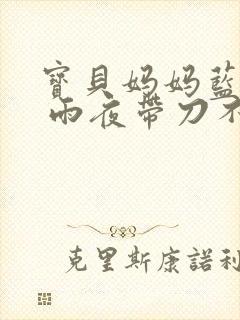 寶貝妈妈藍
雨夜帶刀不
克里斯康諾利